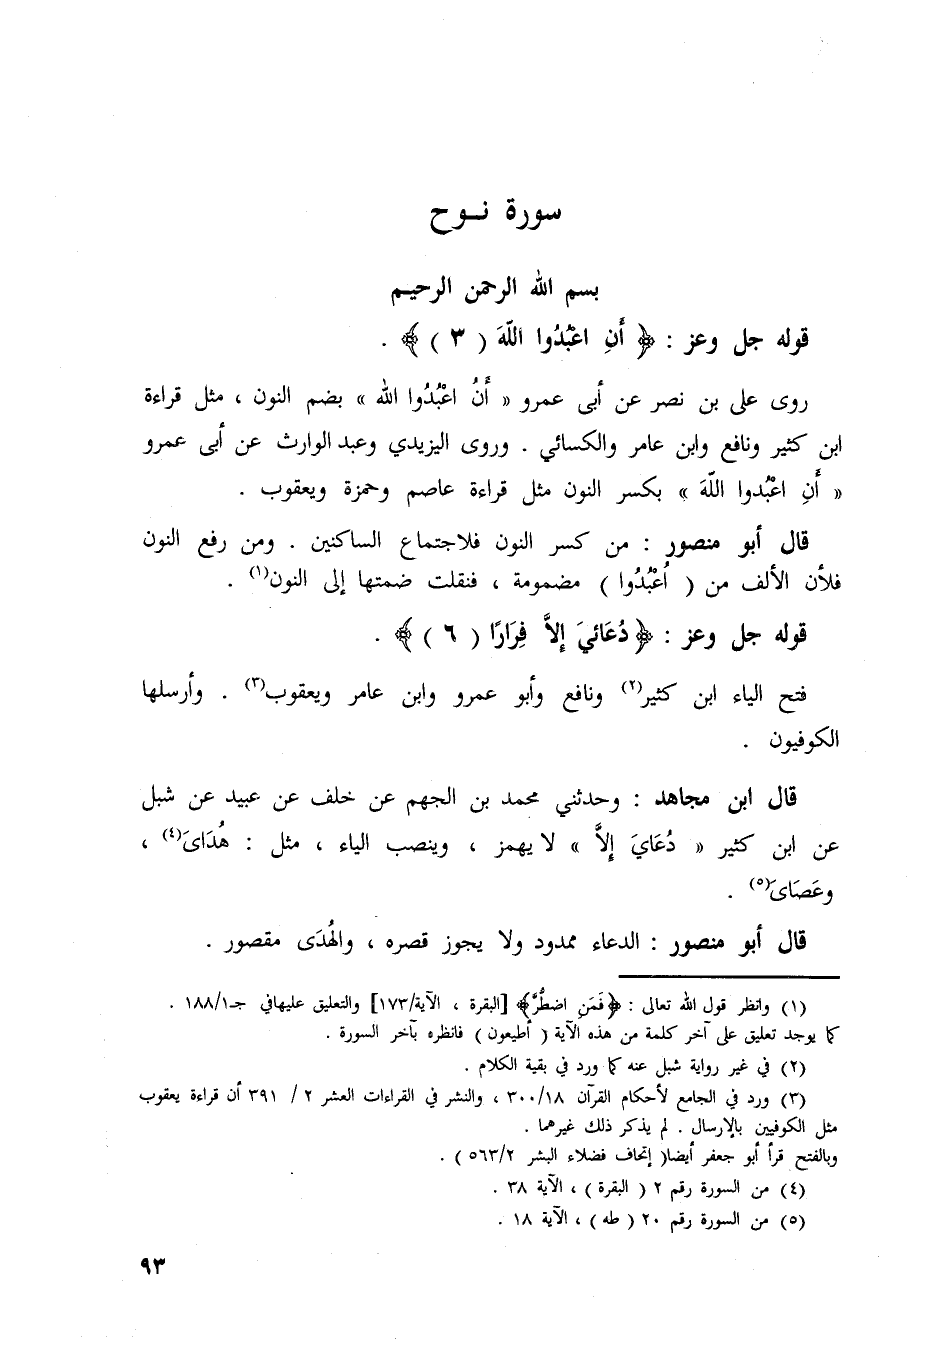 سورة نـوح
بسم الله الرحمن الرحيم
قوله جل وعز : ﴿ أَنِ اعْبُدُوا اللَّهَ ( ٣ ) ﴾ .
روى على بن نصر عن أبى عمرو « أَنُ اعْبُدُوا الله » بضم النون ، مثل قراءة
ابن كثير ونافع وابن عامر والكسائي . وروى اليزيدي وعبد الوارث عن أبى عمرو
« أَنِ اعْبُدوا اللَّهَ » بكسر النون مثل قراءة عاصم وحمزة ويعقوب .
قال أبو منصور : من كسر النون فلاجتماع الساكنين . ومن رفع النون
فلأن الألف من ( أُعْبُدُوا ) مضمومة ، فنقلت ضمتها إلى النون(١) .
قوله جل وعز : ﴿ دُعَائيَ إلاَّ فِرَارًا ( ٦ ) ﴾ .
فتح الياء ابن كثير(٢) ونافع وأبو عمرو وابن عامر ويعقوب(٣) . وأرسلها
الكوفيون .
قال ابن مجاهد : وحدثني محمد بن الجهم عن خلف عن عبيد عن شبل
عن ابن كثير « دُعَايَ إلاَّ » لا يهمز ، وينصب الياء ، مثل : هُدَاىَ(٤) ،
وعَصَاىَ(٥) .
قال أبو منصور : الدعاء ممدود ولا يجوز قصره ، والهُدَى مقصور .
(١) وانظر قول الله تعالى : ﴿فَمَنِ اضطُرَّ﴾ [البقرة ، الآية/١٧٣] والتعليق عليهافي جـ١٨٨/١ .
كما يوجد تعليق على آخر كلمة من هذه الآية ( أطيعون ) فانظره بآخر السورة .
(٢) في غير رواية شبل عنه كما ورد في بقية الكلام .
(٣) ورد في الجامع لأحكام القرآن ٣٠٠/١٨ ، والنشر في القراءات العشر ٢ / ٣٩١ أن قراءة يعقوب
مثل الكوفيين بالإرسال . لم يذكر ذلك غيرهما .
وبالفتح قرأ أبو جعفر أيضا( إتحاف فضلاء البشر ٥٦٣/٢ ) .
(٤) من السورة رقم ٢ ( البقرة ) ، الآية ٣٨ .
(٥) من السورة رقم ٢٠ ( طه ) ، الآية ١٨ .
٩٣